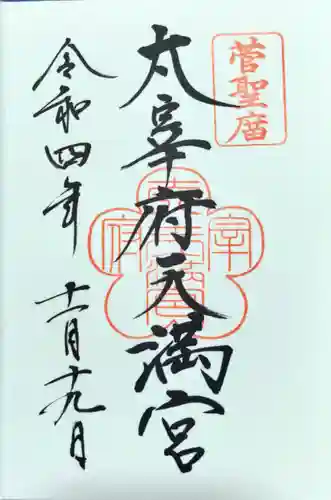 菅聖庿
太宰府天満宮
令和四年
十二月十九日